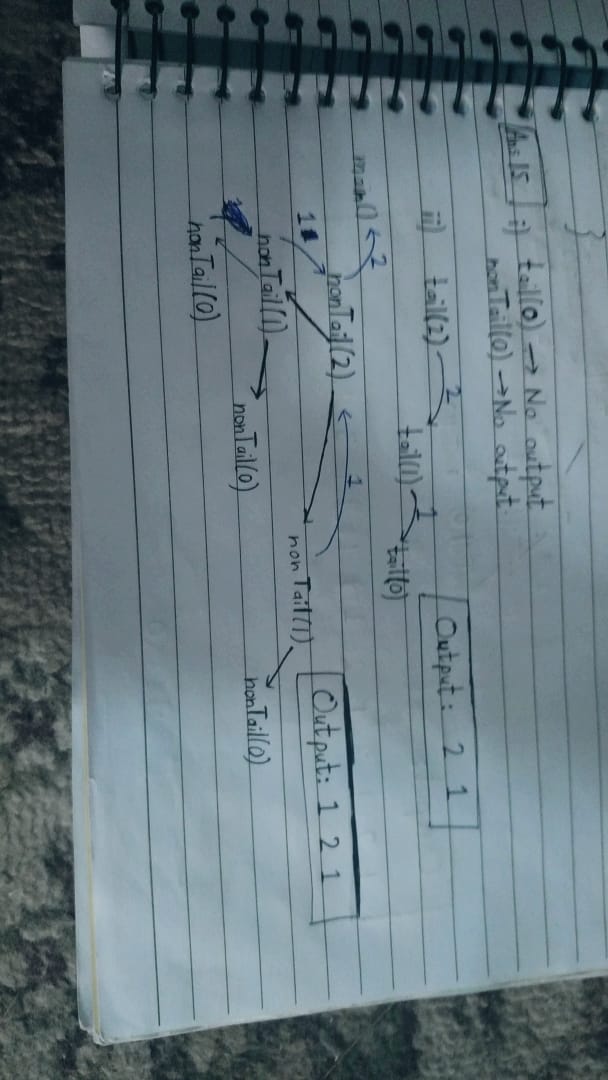 }
Ans 15 i) tail(0) → No output
nonTail(0) → No output.
ii) tail(2) 2 tail(1) 1 tail(0)
Output: 2 1
main() 2 nonTail(2) 1
1 nonTail(1) nonTail(1)
Output: 1 2 1
nonTail(0) nonTail(0) nonTail(0)